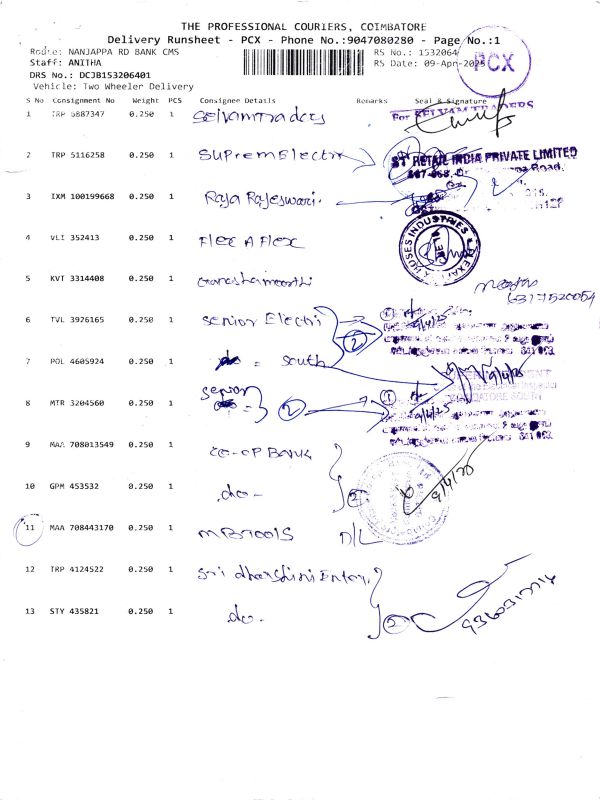 THE PROFESSIONAL COURIERS, COIMBATORE
Delivery Runsheet - PCX - Phone No.:9047080280 - Page No.:1
Route: NANJAPPA RD BANK CMS
RS No.: 1532064
Staff: ANITHA
RS Date: 09-Apr-2025
PCX
DRS No.: DCJB153206401
Vehicle: Two Wheeler Delivery
S No Consignment No Weight PCS Consignee Details Remarks Seal & Signature
1 TRP 5887347 0.250 1 Selvamtraders For SELVAM TRADERS
2 TRP 5116258 0.250 1 SupremElectri
ST RETAIL INDIA PRIVATE LIMITED
Road,
3 IXM 100199668 0.250 1 Raja Rajeswari.
4 VLI 352413 0.250 1 Flex A Flex
INDUSTRIES
5 KVT 3314408 0.250 1
6 TVL 3926165 0.250 1 Senior Electri 2 1 9/4/25
7 POL 4605924 0.250 1 do = South
9/4/25
8 MTR 3204560 0.250 1 Senior 2 1 9/4/25
9 MAA 708013549 0.250 1 CO-OP BANK
10 GPM 453532 0.250 1 do - 2 9/4/25
11 MAA 708443170 0.250 1 MBTOOLS D/L
12 TRP 4124522 0.250 1 Sri dharshini Enter,
13 STY 435821 0.250 1 do - 2